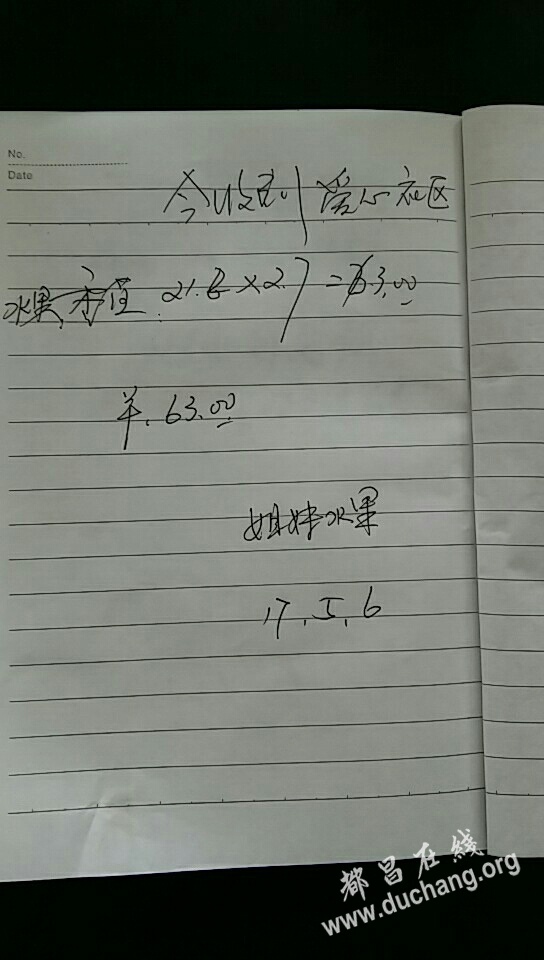 No.
Date
今收到爱心社区
水果, 香值: 21.8×2.7=63.00
羊.63.00
姐妹水果
17.5.6
都昌在线
www.duchang.org